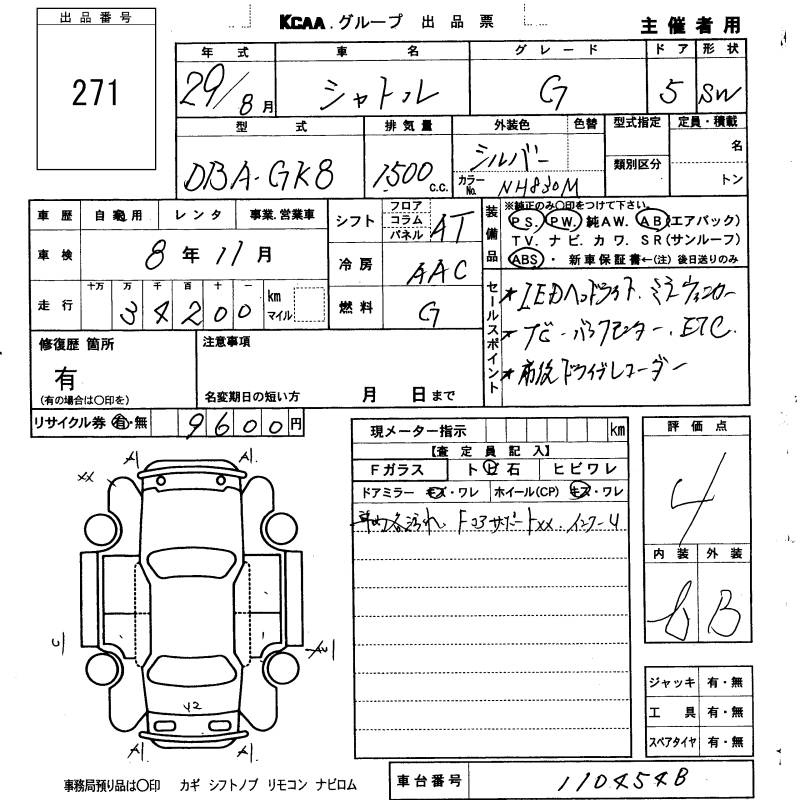 出品番号
271
KCAA.グループ 出品票
主催者用
年式 車名 グレード ドア 形状
29/8月 シャトル G 5 SW
型式 排気量 外装色 色替 型式指定 定員・積載
DBA-GK8 1500 c.c. シルバー 類別区分 名
カラーNo. NH830M トン
車歴 自家用 レンタ 事業.営業車
車検 8年11月
走行 十万 万 千 百 十 一
34200 km マイル
シフト フロア コラム パネル AT
冷房 AAC
燃料 G
装備品 ※純正のみ○印をつけて下さい。
PS. PW. 純AW. AB(エアバック)
TV. ナビ. カワ. SR(サンルーフ)
ABS・ 新車保証書←(注) 後日送りのみ
セールスポイント
★LEDヘッドライト.ミラーウィンカー
★ナビ・バックモニター.ETC.
★前後ドライブレコーダー
修復歴 箇所
有
(有の場合は○印を)
注意事項
名変期日の短い方 月 日まで
リサイクル券 有・無 9600円
現メーター指示 km
【査定員記入】
Fガラス トビ石 ヒビワレ
ドアミラー キズ・ワレ ホイール(CP) キズ・ワレ
評価点
4
内装 外装
B
A1 A1.
XX
Y2
ジャッキ 有・無
工具 有・無
スペアタイヤ 有・無
事務局預り品は○印 カギ シフトノブ リモコン ナビロム
車台番号 1104548